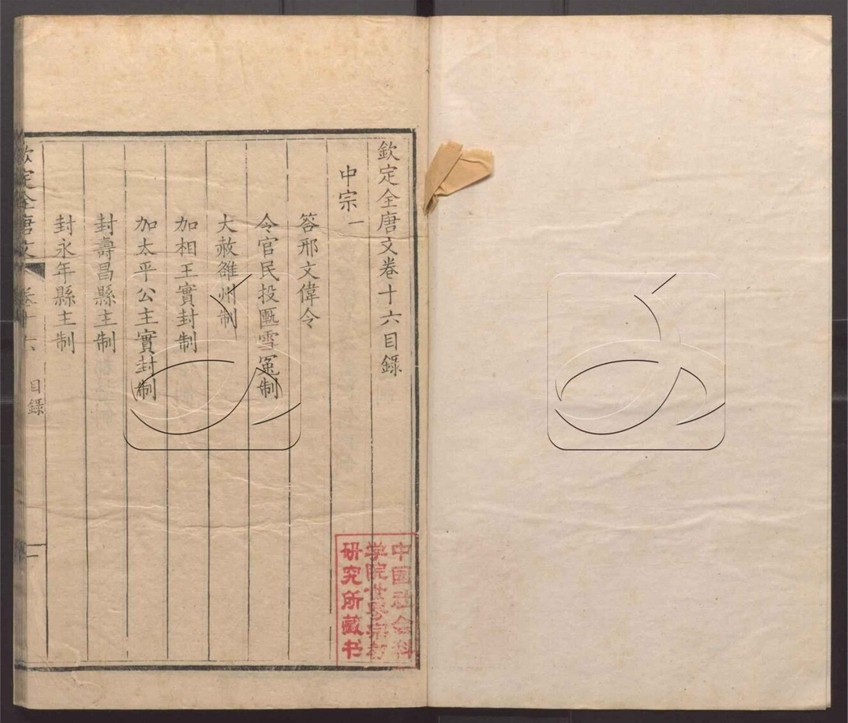 欽定全唐文卷十六目錄
中宗一
答邢文偉令
令官民投匭雪冤制
大赦雒州制
加相王實封制
加太平公主實封制
封壽昌縣主制
封永年縣主制
欽定全唐文 卷十六 目錄 一
中国社会科
学院世界宗教
研究所藏书